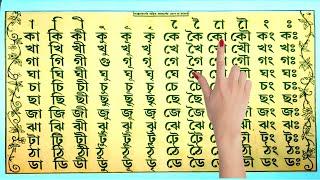 া ি ী ু ূ ৃ ে ৈ ো ৌ ং ঃ
কা কি কী কু কূ কৃ কে কৈ কো কৌ কং কঃ
খা খি খী খু খূ খৃ খে খৈ খৌ খং খঃ
গা গি গী গু গূ গৃ গে গৈ গৌ গং গঃ
ঘা ঘি ঘী ঘু ঘূ ঘৃ ঘে ঘৈ ঘৌ ঘং ঘঃ
চা চি চী চু চূ চৃ চে চৈ চৌ চং চঃ
ছা ছি ছী ছু ছূ ছৃ ছে ছৈ ছং ছঃ
জা জি জী জু জূ জৃ জে জৈ জং জঃ
ঝা ঝি ঝী ঝু ঝূ ঝৃ ঝে ঝৈ ঝং ঝঃ
টা টি টী টু টূ টৃ টে টৈ টং টঃ
ঠা ঠি ঠী ঠু ঠূ ঠৃ ঠে ঠৈ ঠং ঠঃ
ডা ডি ডী ডু ডূ ডৃ ডে ডৈ ডং ডঃ